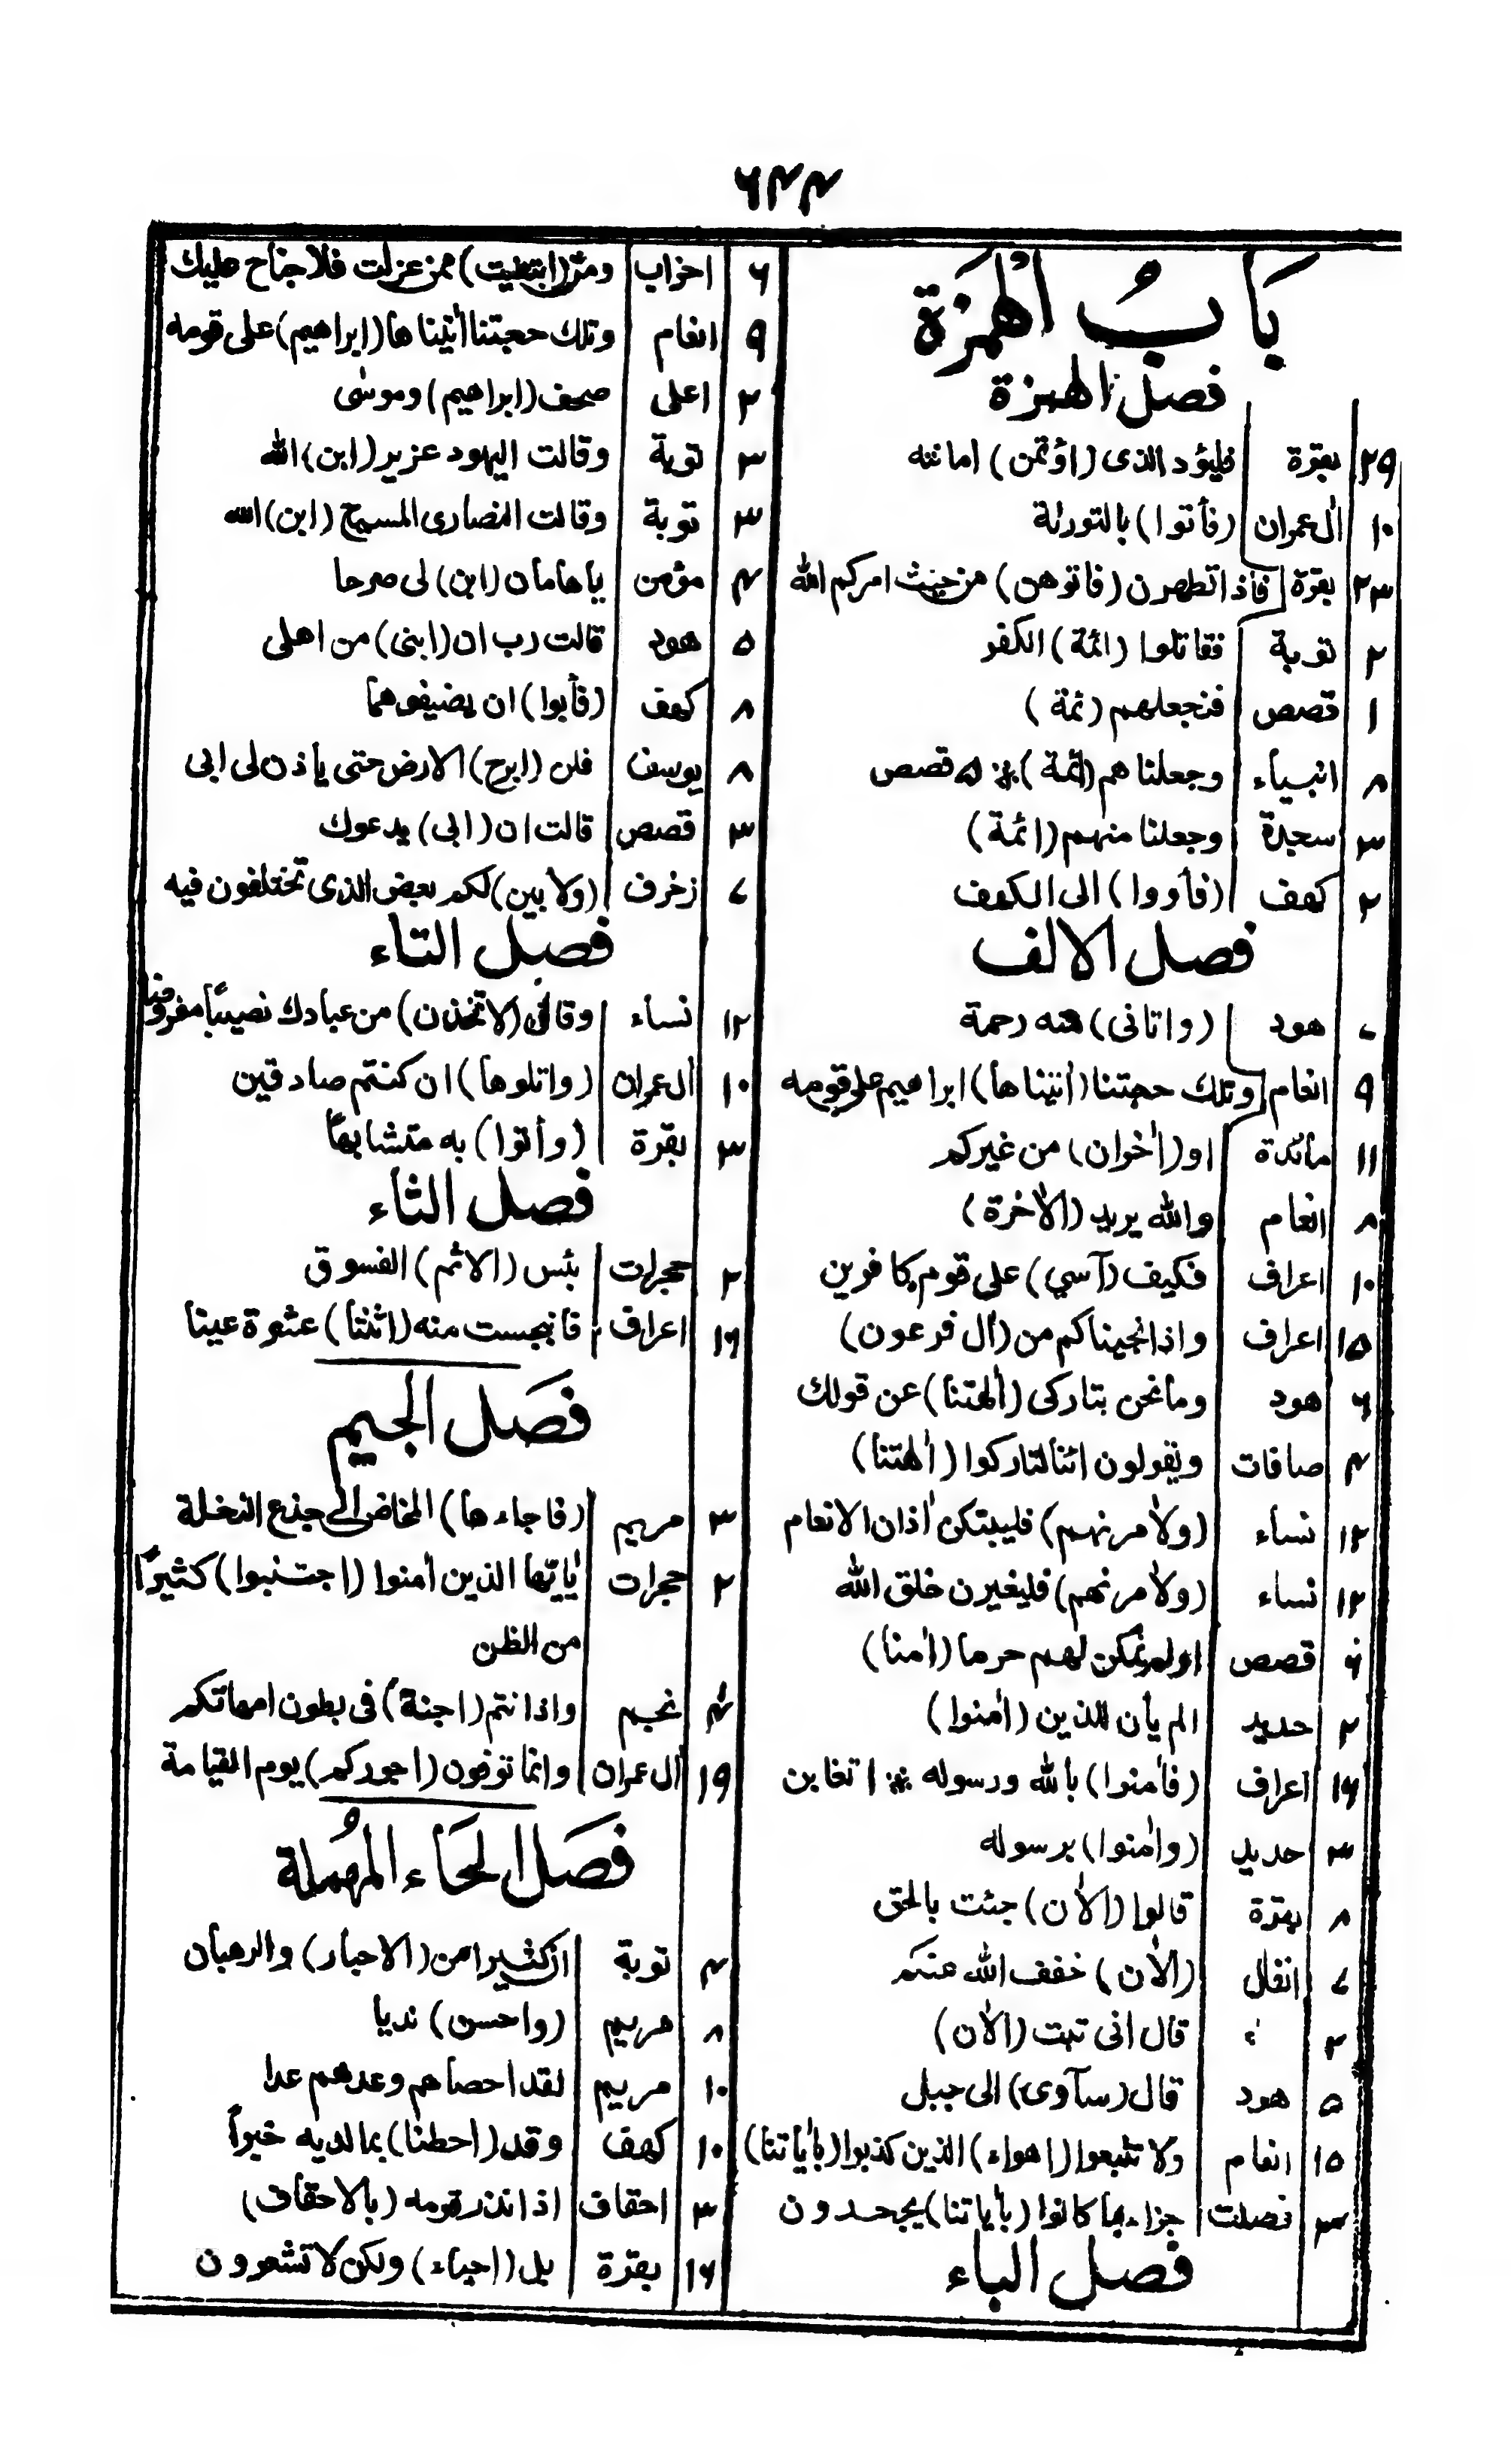 ۶۴۴
بَابُ الْهَمْزَة
فصل الهمزة
۲۹ بقرة فليؤد الذى (اؤتمن) امانته
۱۰ اٰل عمران (فأتوا) بالتورٰىة
۲۳ بقرة فاذا تطهرن (فاتوهن) من حيث امركم الله
۲ توبة فقاتلوا (ائمة) الكفر
۱ قصص فنجعلهم (ئمة)
۸ انبياء وجعلنا هم (ائمة) ※ ۵ قصص
۳ سجدة وجعلنا منهم (ائمة)
۲ كهف (فأووا) الى الكهف
فصل الالف
هود (واتانى) منه رحمة
۹ انعام وتلك حجتنا (أتيناها) ابراهيم على قومه
۱۱ مائدة او (اٰخران) من غيركم
۸ انعام والله يريد (الاٰخرة)
۱۰ اعراف فكيف (آسي) على قوم كافرين
۱۵ اعراف واذ انجيناكم من (اٰل فرعون)
۶ هود وما نحن بتاركى (اٰلهتنا) عن قولك
۴ صافات ويقولون ائنا لتاركوا (اٰلهتنا)
۱۲ نساء (ولاٰمرنهم) فليبتكن اٰذان الانعام
۱۲ نساء (ولاٰمرنهم) فليغيرن خلق الله
۶ قصص اولم نمكن لهم حرما (اٰمنا)
۲ حديد الم يأن للذين (اٰمنوا)
۱۶ اعراف (فاٰمنوا) بالله ورسوله ※ ۱ تغابن
۳ حديد (واٰمنوا) برسوله
۸ بقرة قالوا (الاٰن) جئت بالحق
۷ انفال (الاٰن) خفف الله عنكم
۲ ء قال انى تبت (الاٰن)
۵ هود قال (سآوى) الى جبل
۱۵ انعام ولا تتبعوا (اهواء) الذين كذبوا (باٰياتنا)
۳ فصلت جزاء بما كانوا (باٰياتنا) يجحدون
فصل الباء
۶ احزاب ومن (ابتغيت) ممن عزلت فلا جناح عليك
۹ انعام وتلك حجتنا أتيناها (ابراهيم) على قومه
۲ اعلى صحف (ابراهيم) وموسٰى
۳ توبة وقالت اليهود عزير (ابن) الله
۳ توبة وقالت النصارى المسيح (ابن) الله
۴ مؤمن ياهامان (ابن) لى صرحا
۵ هود قالت رب ان (ابنى) من اهلى
۸ كهف (فأبوا) ان يضيفوهما
۸ يوسف فلن (ابرح) الارض حتى ياذن لى ابى
۳ قصص قالت ان (ابى) يدعوك
۷ زخرف (ولابين) لكم بعض الذى تختلفون فيه
فصل التاء
۱۲ نساء وقال (لاتخذن) من عبادك نصيبًا مفروضا
۱۰ اٰل عمران (واتلوها) ان كنتم صادقين
۳ بقرة (وأتوا) به متشابهًا
فصل الثاء
۲ حجرات بئس (الاثم) الفسوق
۱۶ اعراف فانبجست منه (اثنتا) عشرة عينا
فَصَل الجيم
۳ مريم (فاجاءها) المخاض الى جذع النخلة
۲ حجرات يٰايّها الذين اٰمنوا (اجتنبوا) كثيرًا
من الظن
۴ نجم واذ انتم (اجنة) فى بطون امهاتكم
۱۹ اٰل عمران وانما توفون (اجوركم) يوم القيامة
فَصَل الحَاء المهُملة
۴ توبة ان كثيرا من (الاحبار) والرهبان
۸ مريم (واحسن) نديا
۱۰ مريم لقد احصاهم وعدهم عدا
۱۰ كهف وقد (احطنا) بما لديه خبراً
۳ احقاف اذ انذر قومه (بالاحقاف)
۱۶ بقرة بل (احياء) ولكن لا تشعرون